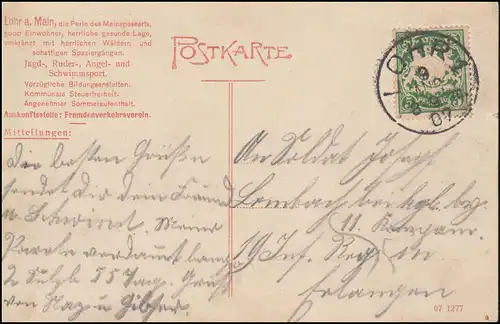 Lohr a. Main, die Perle des Mainspessarts,
5000 Einwohner, herrliche gesunde Lage,
umkränzt mit herrlichen Wäldern und
schattigen Spaziergängen.
Jagd-, Ruder-, Angel- und
Schwimmsport.
Vorzügliche Bildungsanstalten.
Kommunale Steuerfreiheit.
Angenehmer Sommeraufenthalt.
Auskunftsstelle: Fremdenverkehrsverein.
Mitteilungen:
POSTKARTE
LOHR
07
Die besten Grüße
sendet Dir dein Freund
Schreinet. Meine
Parole
2 55 Tag. Gruß
von
An Soldat Joseph
Lembach beim kgl. by.
19 Inf. Reg.
11. Kompan.
in
Erlangen
07 1277